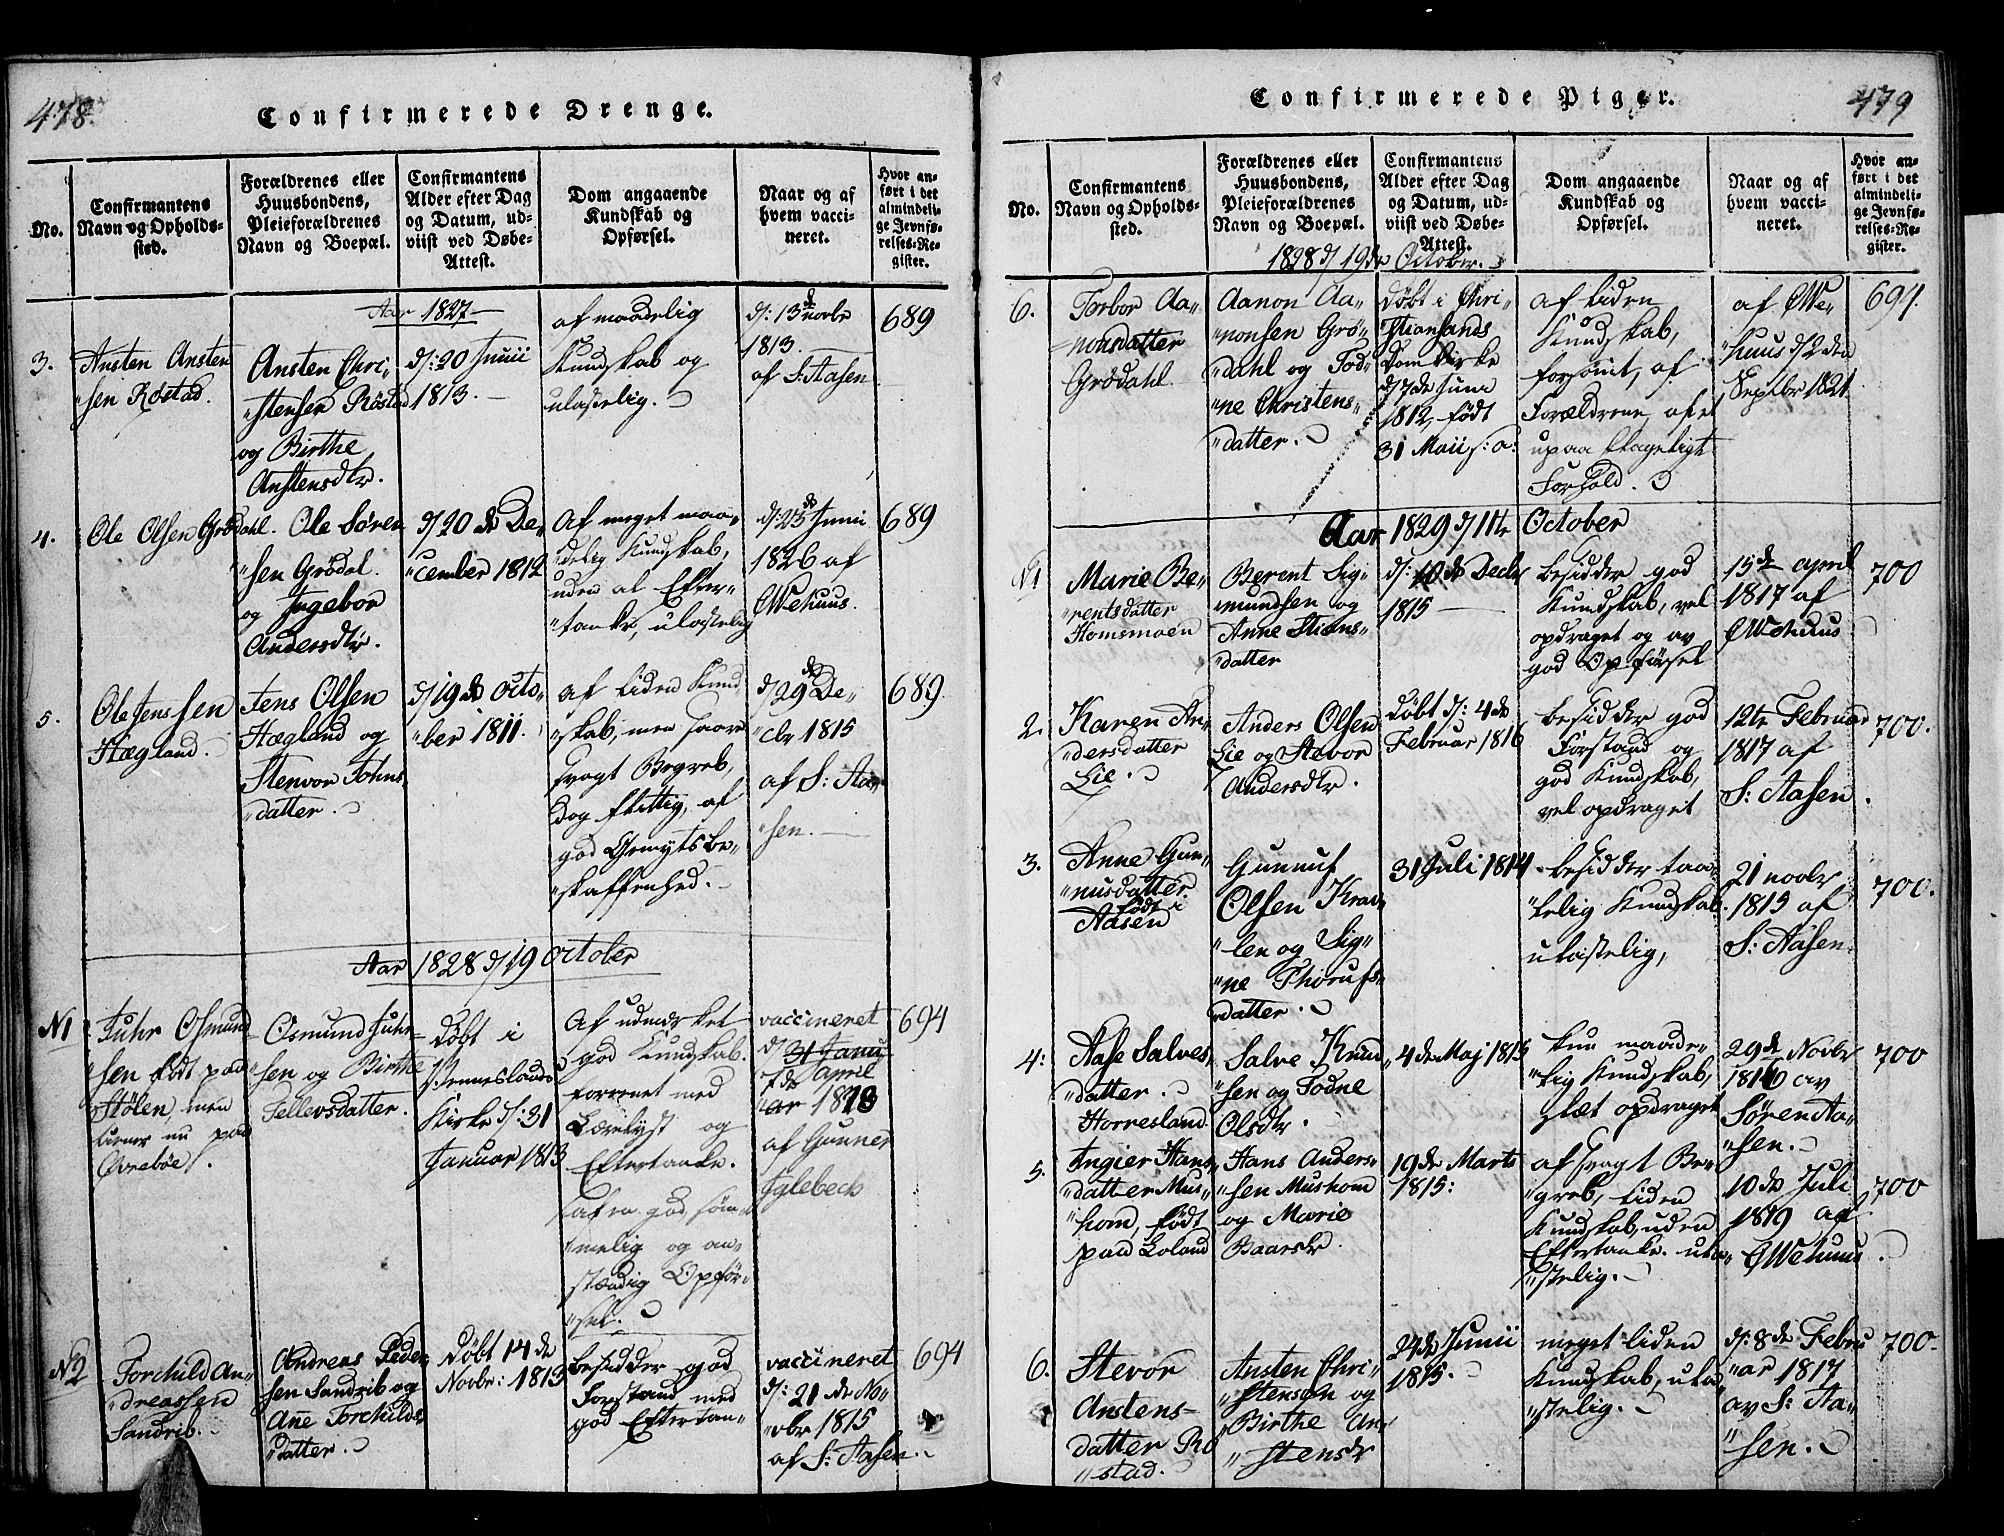 478.
Confirmerede Drenge.
No.
Confirmantens
Navn og Opholds-
sted.
Forældrenes eller
Huusbondens,
Pleieforældrenes
Navn og Boepæl.
Confirmantens
Alder efter Dag
og Datum, ud-
viist ved Døbe-
Attest.
Dom angaaende
Kundskab og
Opførsel.
Naar og af
hvem vacci-
neret.
Hvor an-
ført i det
almindeli-
ge Jevnfø-
relses-Re-
gister.
Aar 1827
3.
Ansten Ansten
"sen Røstad.
Ansten Chri-
"stensen Røstad
og Birthe
Anstensdtr.
d: 20 Junii
1813.
af maadelig
Kundskab og
ulastelig.
d: 13de novbr
1813.
af S: Aasen
689
4.
Ole Olsen Grødahl.
Ole Søren
"sen Grødal.
og Ingebor
Andersdtr.
d/20 de De-
"cember 1812
Af meget maa-
"delig Kundskab,
uden al Efter-
"tanke, ulastelig
d: 23de Junii
1826 af
Wehuus.
689
5.
Ole Jenssen
Hægland.
Jens Olsen
Hægland og
Stenvor Johns
"datter.
d/19 de octo-
"ber 1811.
af liden Kund
"skab, men saare
svagt Begreb,
dog flittig, af
god Gemytsbe-
"skaffenhed.
d/29de De-
"cbr 1815
af S: Aa-
"sen.
689.
Aar 1828 d/19 October
N1
Juhr Osmund
"sen født paa
Stølen, men
tiener nu paa
Øvrebøe.
Osmund Juhr-
"sen og Birthe
Tellevsdatter.
Døbt i
Venneslands
Kirke d: 31
Januar 1813
Af udmærket
god Kundskab.
forenet med
Lærelyst og
Eftertanke.
god, søm-
"melig og an-
"stændig Opfør-
"sel.
vaccineret
d/ 31 Janu
7de april
"ar 1813
af Gunner
Iglebeck
694
N2
Torchild An-
"dreassen
Sandrib.
Andreas Peder
sen Sandrib og
Ane Torchilds
"datter.
Døbt 14 de
Novbr: 1813
besidder god
Forstand med
god Eftertan-
vaccineret
d: 21 de No-
"vbr 1815
af S: Aasen.
694
479
Confirmerede Piger.
No.
Confirmantens
Navn og Opholds-
sted.
Forældrenes eller
Huusbondens,
Pleieforældrenes
Navn og Boepæl.
Confirmantens
Alder efter Dag
og Datum, ud-
viist ved Døbe-
Attest.
Dom angaaende
Kundskab og
Opførsel.
Naar og af
hvem vacci-
neret.
Hvor an-
ført i det
almindeli-
ge Jevnfø-
relses-Re-
gister.
1828 d/ 19de October.
6.
Torbor Aa-
"nonsdatter
Grødahl.
Aanon Aa-
"nonsen Grø-
"dahl og Tod-
"ne Christens-
"datter.
Døbt i Chri-
"stiansands
Domkirke
d/7de Juni
1812, født
31 Maii s: a:
af liden
Kundskab,
forsømt, af
Forældrene, af et
upaaklageligt
Forhold.
af We-
"huus d/2den
Septbr 1821
694.
Aar 1829 d/11te October
N1
Marie Be-
"rentsdatter
Homsmoen
Berent Sig-
"mundsen og
Anne Stians-
"datter
d: 10de Decbr
1815
besidder god
Kundskab, vel
opdraget og av
god Opførsel
15de april
1817 af
Wehuus.
700
2.
Karen An-
"dersdatter
Lie.
Anders Olsen
Lie og Stevor
Andersdtr.
Døbt d: 4de
Februar 1816
besidder god
Forstand og
god Kundskab,
vel opdraget
12te Februar
1817 af
S: Aasen.
700.
3.
Anne Gun-
"nufsdatter
født i
Aasen
Gunnuf
Olsen Kraa-
"len og Sig-
"ne Thorufs-
"datter.
31 Juli 1814
besidder taa-
"lelig Kundskab.
ulastelig,
21 novbr
1815 af
S: Aasen.
700.
4:
Aase Salves-
"datter.
Horresland
Salve Knud-
"sen og Todne
Olsdtr.
4de Maj 1815
kun maade-
"lig Kundskab,
slæt opdraget
29de Novbr
1816 av
Søren Aa-
"sen.
700
5.
Ingier Hans-
"datter Mus-
"hom, født
paa Loland
Hans Anders-
"sen Mushom
og Marie
Baarsdr.
19de Marts
1815:
af svagt Be-
"greb, liden
Kundskab, uden
Eftertanke. ula-
"stelig.
10de Juli
1819 af
Wehuus.
700
6.
Stevor
Anstens-
datter Rø
"stad.
Ansten Chri-
"stensen og
Birthe An-
"stensdr
24de Junii
1815.
meget liden
Kundskab, ula-
"stelig.
d: 8de Febru
"ar 1817
av S: Aa-
"sen.
700.